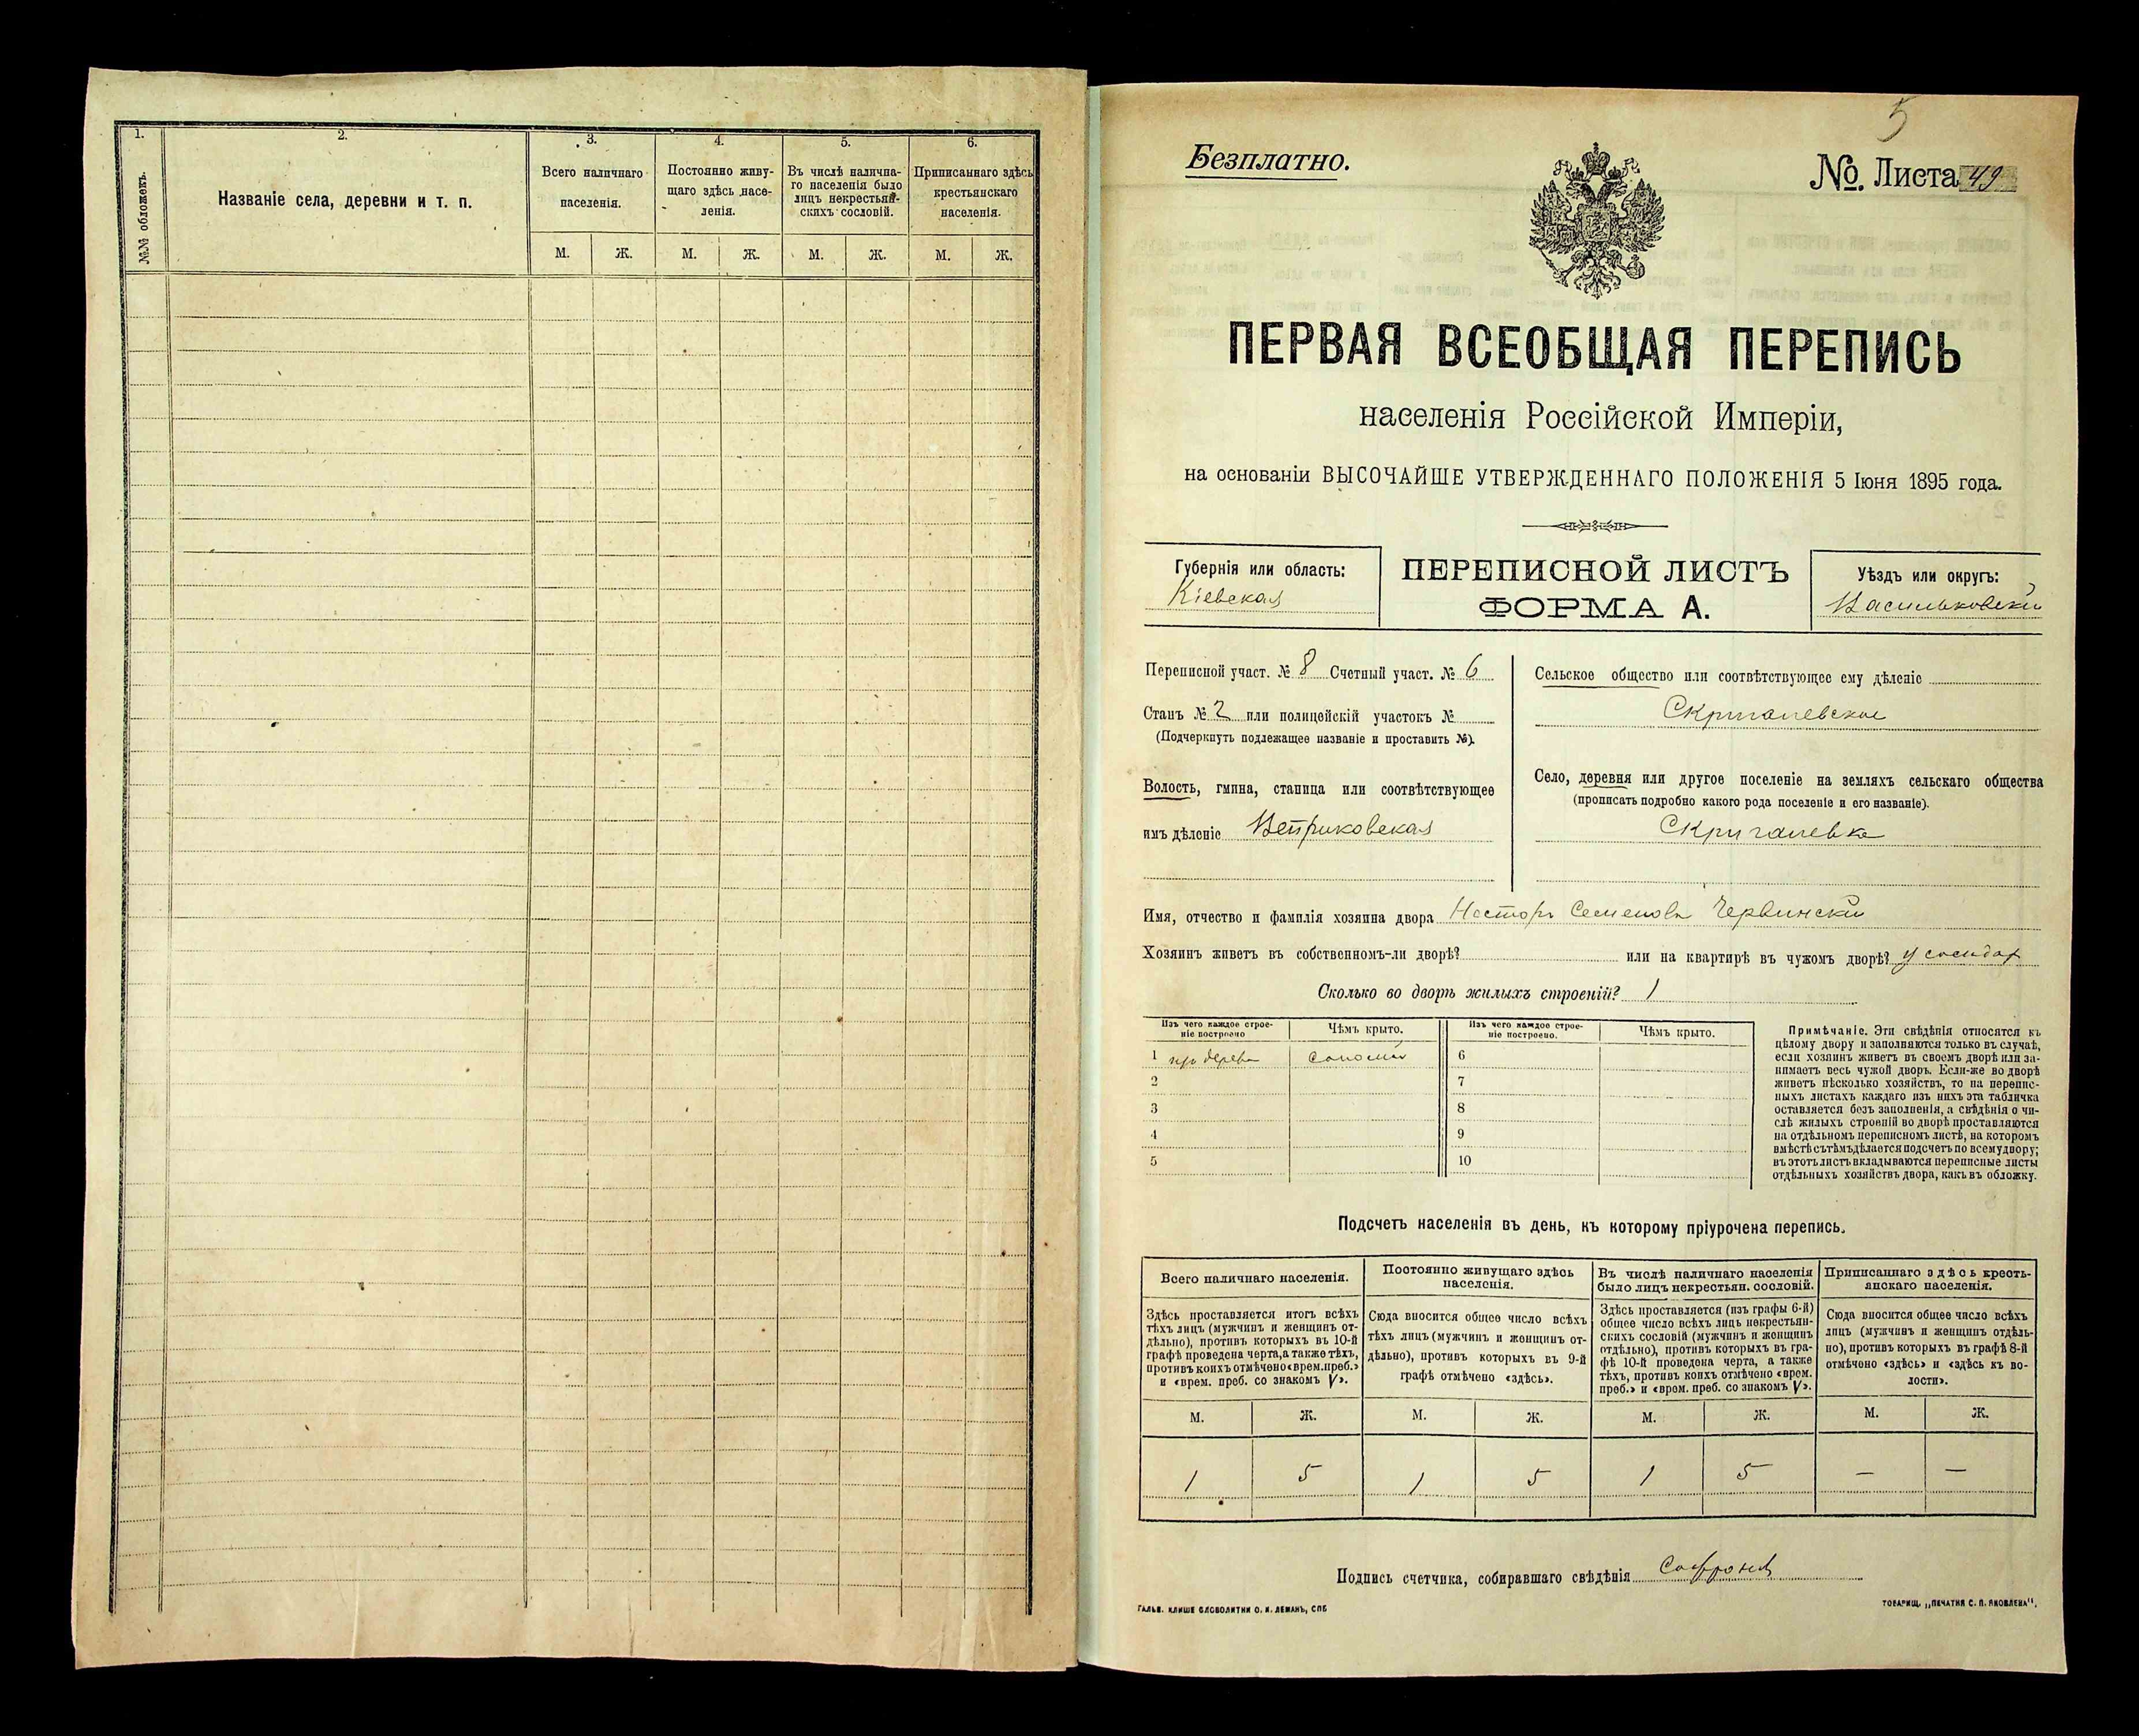 1.
2.
3.
4.
5.
6.
№№ обложекъ.
Названіе села, деревни и т. п.
Всего наличнаго
населенія.
Постоянно живу-
щаго здѣсь насе-
ленія.
Въ числѣ налична-
го населенія было
лицъ некрестьян-
скихъ сословій.
Приписаннаго здѣсь
крестьянскаго
населенія.
М. Ж. М. Ж. М. Ж. М. Ж.
5
Безплатно.
№. Листа 49
ПЕРВАЯ ВСЕОБЩАЯ ПЕРЕПИСЬ
населенія Россійской Имперіи,
на основаніи ВЫСОЧАЙШЕ УТВЕРЖДЕННАГО ПОЛОЖЕНІЯ 5 Іюня 1895 года.
Губернія или область:
Кіевская
ПЕРЕПИСНОЙ ЛИСТЪ
ФОРМА А.
Уѣздъ или округъ:
Васильковскій
Переписной участ. № 8 Счетный участ. № 6
Станъ № 2 или полицейскій участокъ №
(Подчеркнуть подлежащее названіе и проставить №).
Волость, гмина, станица или соотвѣтствующее
имъ дѣленіе Веприковская
Сельское общество или соотвѣтствующее ему дѣленіе
Скригалевское
Село, деревня или другое поселеніе на земляхъ сельскаго общества
(прописать подробно какого рода поселеніе и его названіе).
Скригалевка
Имя, отчество и фамилія хозяина двора Несторъ Семеновъ Червинскій
Хозяинъ живетъ въ собственномъ-ли дворѣ? или на квартирѣ въ чужомъ дворѣ? у
Сколько во дворѣ жилыхъ строеній? 1
Изъ чего каждое строе-
ніе построено
Чѣмъ крыто.
Изъ чего каждое строе-
ніе построено.
Чѣмъ крыто.
1 изъ дерева соломой 6
2 7
3 8
4 9
5 10
Примѣчаніе. Эти свѣдѣнія относятся къ
цѣлому двору и заполняются только въ случаѣ,
если хозяинъ живетъ въ своемъ дворѣ или за-
нимаетъ весь чужой дворъ. Если-же во дворѣ
живетъ нѣсколько хозяйствъ, то на перепис-
ныхъ листахъ каждаго изъ нихъ эта табличка
оставляется безъ заполненія, а свѣдѣнія о чи-
слѣ жилыхъ строеній во дворѣ проставляются
на отдѣльномъ переписномъ листѣ, на которомъ
вмѣстѣ съ тѣмъ дѣлается подсчетъ по всему двору;
въ этотъ листъ вкладываются переписные листы
отдѣльныхъ хозяйствъ двора, какъ въ обложку.
Подсчетъ населенія въ день, къ которому пріурочена перепись.
Всего наличнаго населенія.
Постоянно живущаго здѣсь
населенія.
Въ числѣ наличнаго населенія
было лицъ некрестьян. сословій.
Приписаннаго здѣсь кресть-
янскаго населенія.
Здѣсь проставляется итогъ всѣхъ
тѣхъ лицъ (мужчинъ и женщинъ от-
дѣльно), противъ которыхъ въ 10-й
графѣ проведена черта, а также тѣхъ,
противъ коихъ отмѣчено «врем. преб.»
и «врем. преб. со знакомъ V».
Сюда вносится общее число всѣхъ
тѣхъ лицъ (мужчинъ и женщинъ от-
дѣльно), противъ которыхъ въ 9-й
графѣ отмѣчено «здѣсь».
Здѣсь проставляется (изъ графы 6-й)
общее число всѣхъ лицъ некрестьян-
скихъ сословій (мужчинъ и женщинъ
отдѣльно), противъ которыхъ въ гра-
фѣ 10-й проведена черта, а также
тѣхъ, противъ коихъ отмѣчено «врем.
преб.» и «врем. преб. со знакомъ V».
Сюда вносится общее число всѣхъ
лицъ (мужчинъ и женщинъ отдѣль-
но), противъ которыхъ въ графѣ 8-й
отмѣчено «здѣсь» и «здѣсь къ во-
лости».
М. Ж. М. Ж. М. Ж. М. Ж.
1 5 1 5 1 5 — —
Подпись счетчика, собиравшаго свѣдѣнія
ГАЛЬВ. КЛИШЕ СЛОВОЛИТНИ О. И. ЛЕМАНЪ, СПБ
ТОВАРИЩ. „ПЕЧАТНЯ С. П. ЯКОВЛЕВА".